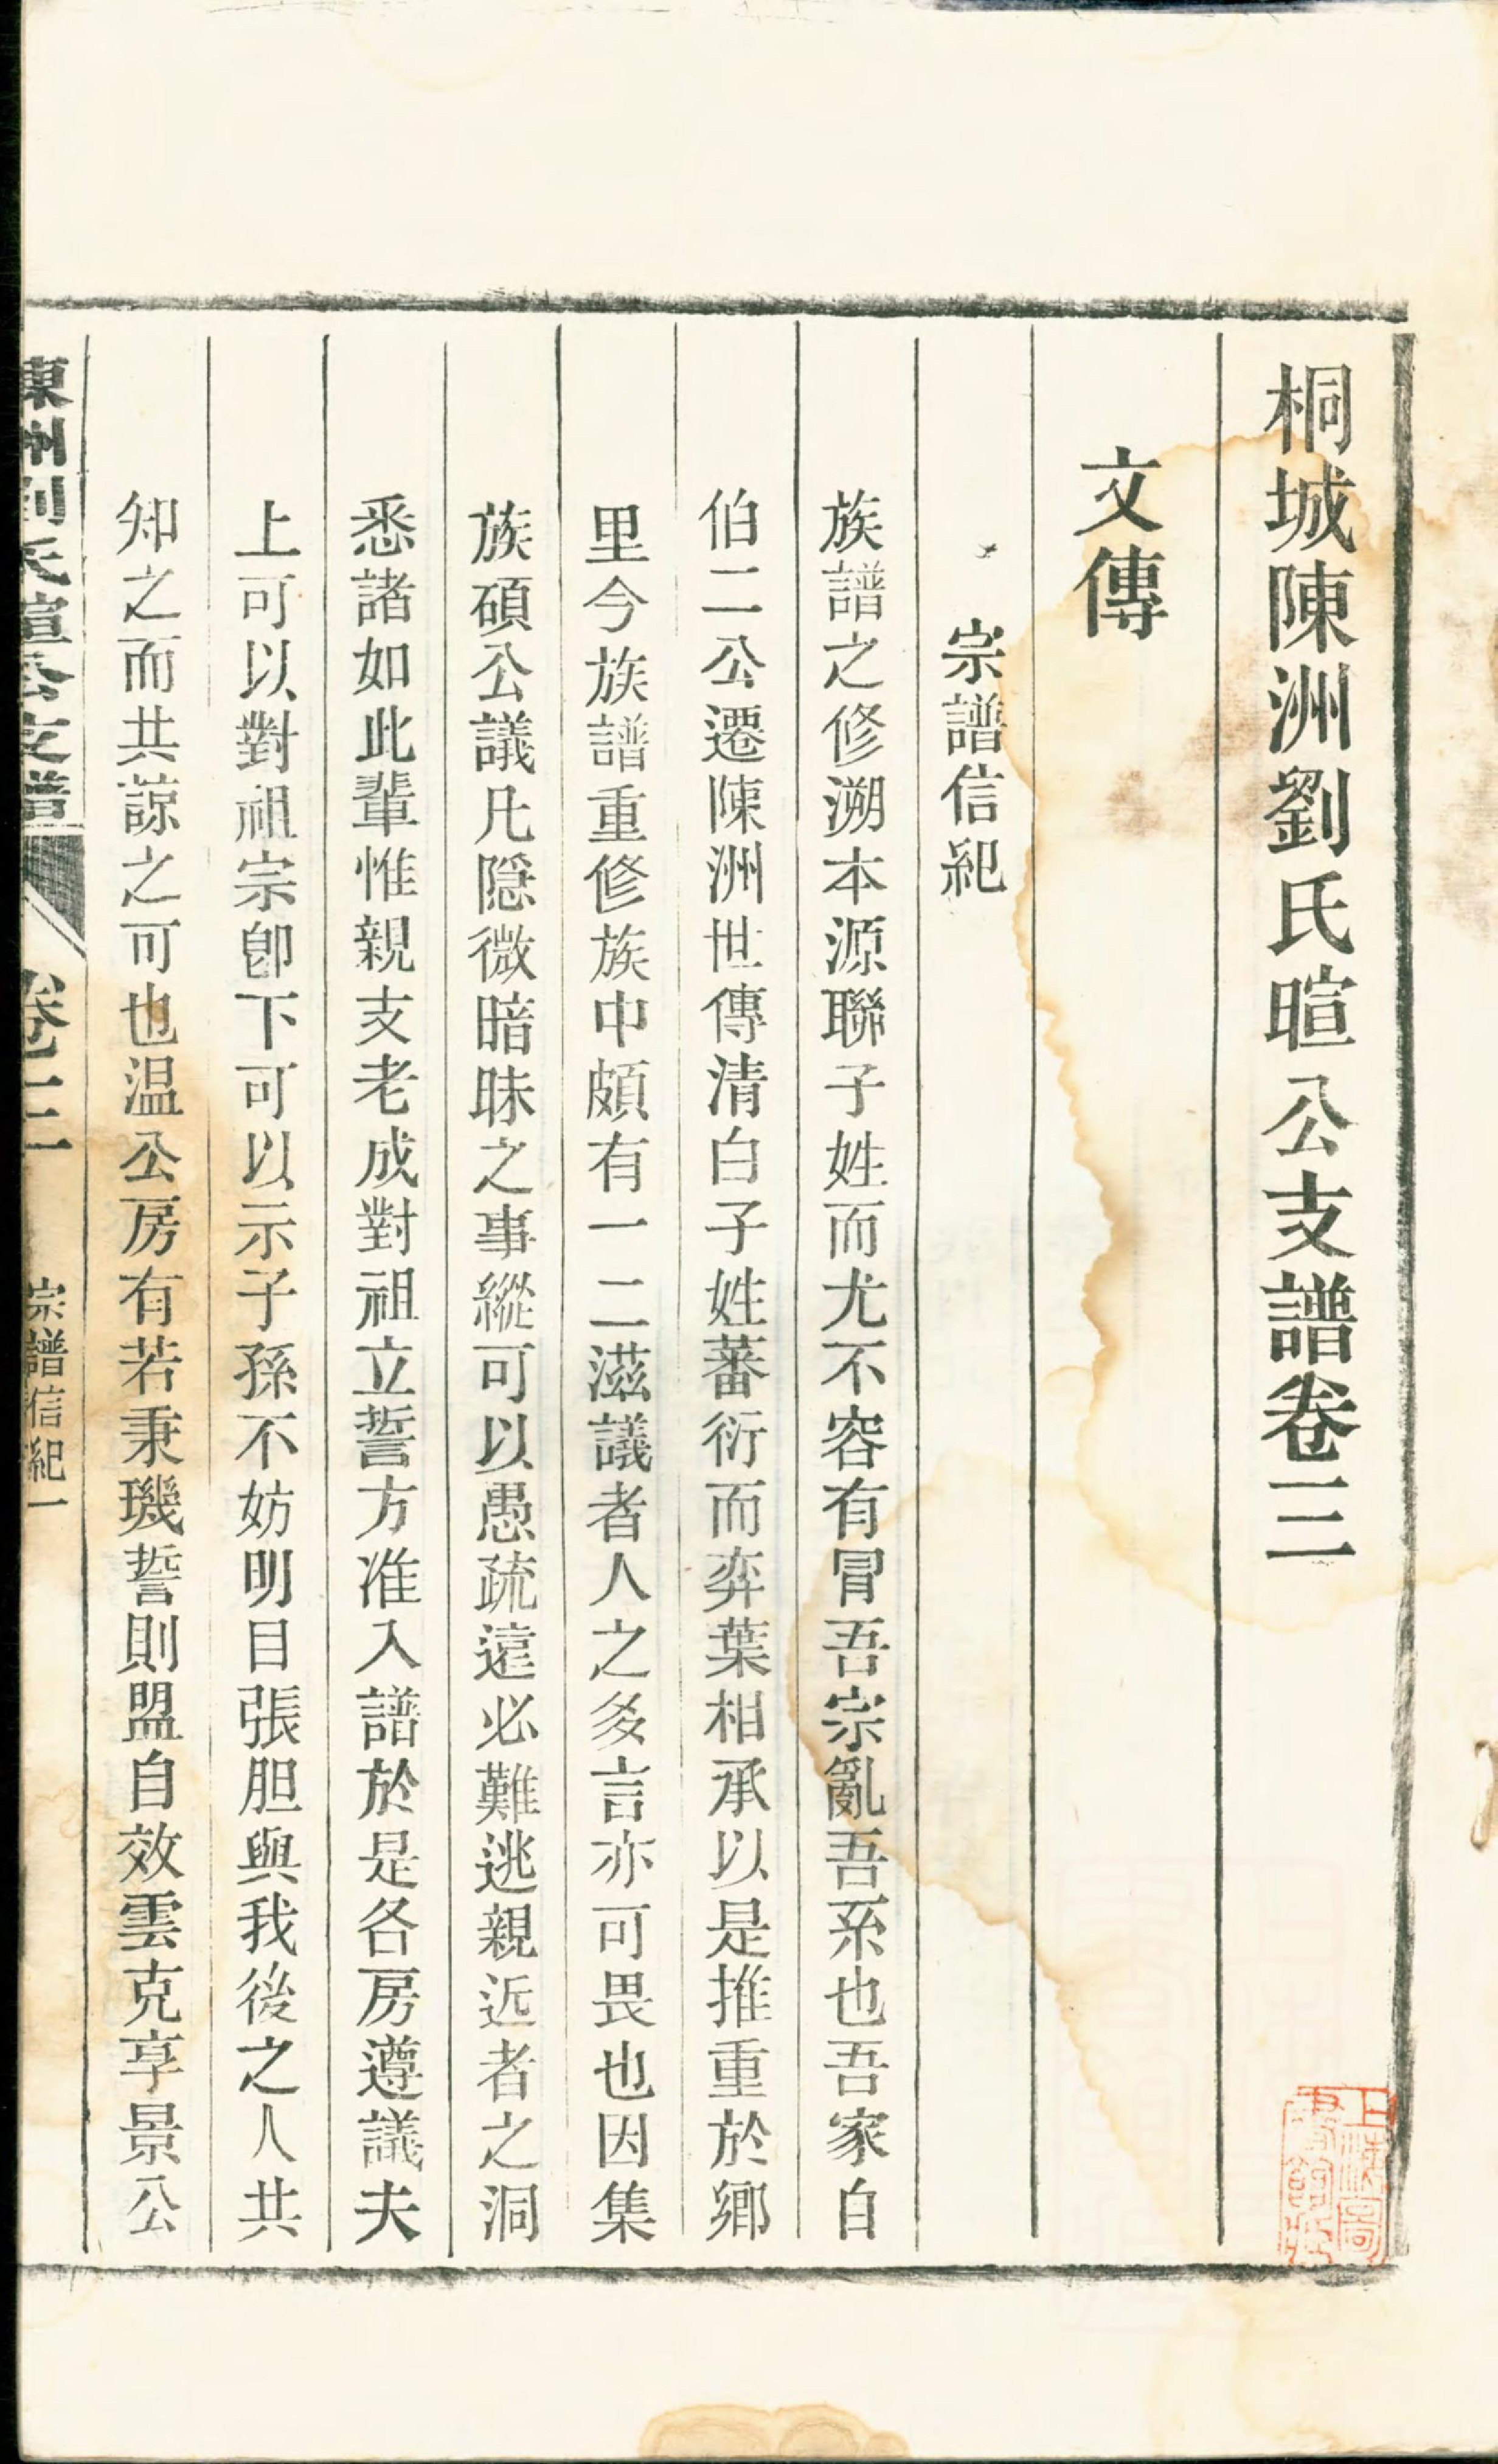 桐城陳洲劉氏暄公支譜卷二
文傳
宗譜信紀
族譜之修溯本源聯子姓而尤不容有冐吾宗亂吾系也吾家自
伯二公遷陳洲世傳清白子姓蕃衍而弈葉相承以是推重於鄉
里今族譜重修族中頗有一二滋議者人之多言亦可畏也因集
族碩公議凡隱微暗昧之事縱可以愚疏遠必難逃親近者之洞
悉諸如此輩惟親支老成對祖立誓方准入譜於是各房遵議夫
上可以對祖宗卽下可以示子孫不妨明目張胆與我後之人共
知之而共諒之可也温公房有若秉璣誓則盟自效雲克享景公
陳洲劉氏暄公支譜
卷二
宗譜信紀一